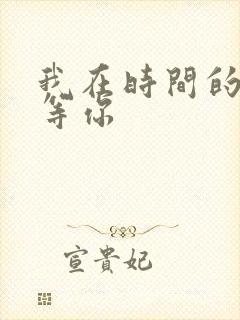 我在時間的
等你
宣貴妃